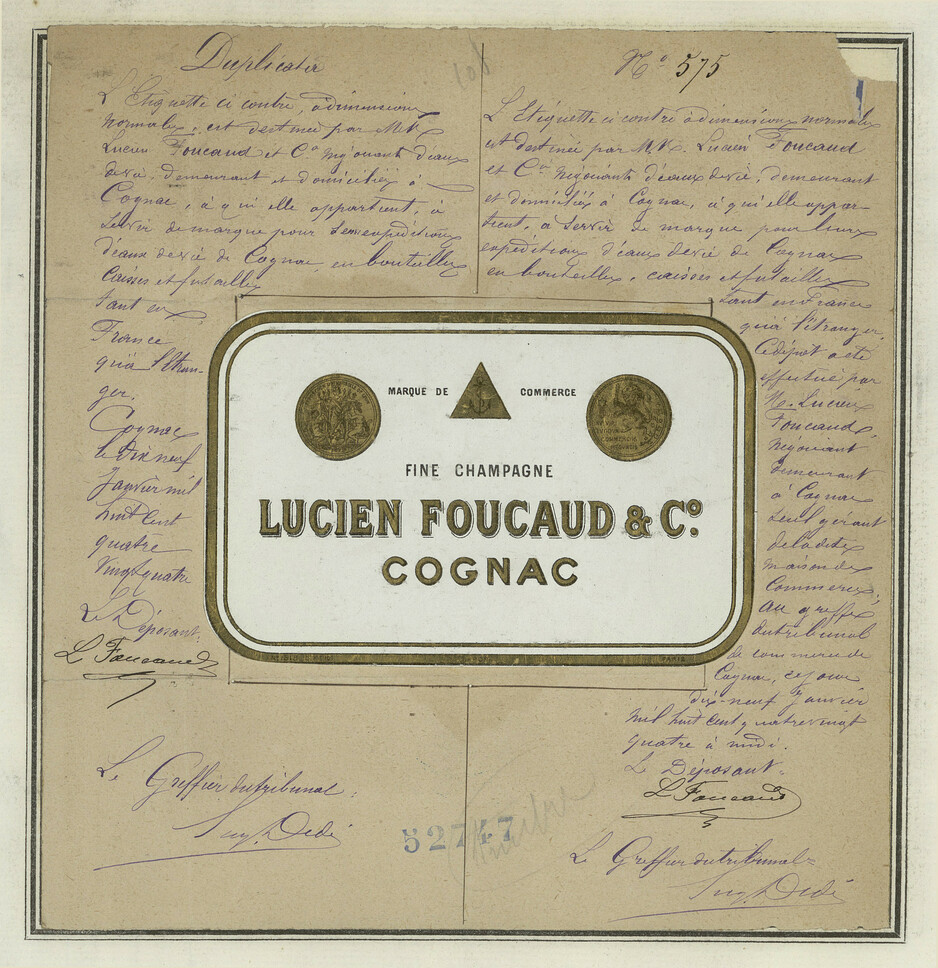 Duplicata
L'Etiquette ci contre, à dimensions
normales, est destinée par M.M.
Lucien Foucaud et Cie négociants d'eaux
de vie, demeurant et domiciliés à
Cognac, à qui elle appartient, à
servir de marque pour leurs expéditions
d'eaux de vie de Cognac, en bouteilles
Caisses et futailles
tant en
France
qu'à l'Etran-
ger.
Cognac
le dix neuf
Janvier mil
huit cent
quatre
vingt quatre
Le Déposant.
L Foucaud
Le Greffier du tribunal.
108
No 575
L'Etiquette ci contre à dimensions normales
est destinée par M.M. Lucien Foucaud
et Cie négociants d'eaux de vie, demeurant
et domiciliés à Cognac, à qui elle appar-
tient, à servir de marque pour leurs
expéditions d'eaux de vie de Cognac
en bouteilles, caisses et futailles
tant en France
qu'à l'étranger.
Ce dépôt a été
effectué par
M. Lucien
Foucaud,
négociant
demeurant
à Cognac
seul gérant
de la dite
maison de
Commerce,
au greffe
du tribunal
de commerce de
Cognac, ce jour
dix-neuf Janvier
mil huit cent quatre vingt
quatre à midi.
Le Déposant.
L Foucaud
Le Greffier du tribunal
MARQUE DE COMMERCE
FINE CHAMPAGNE
LUCIEN FOUCAUD & Co.
COGNAC
PARIS
52747